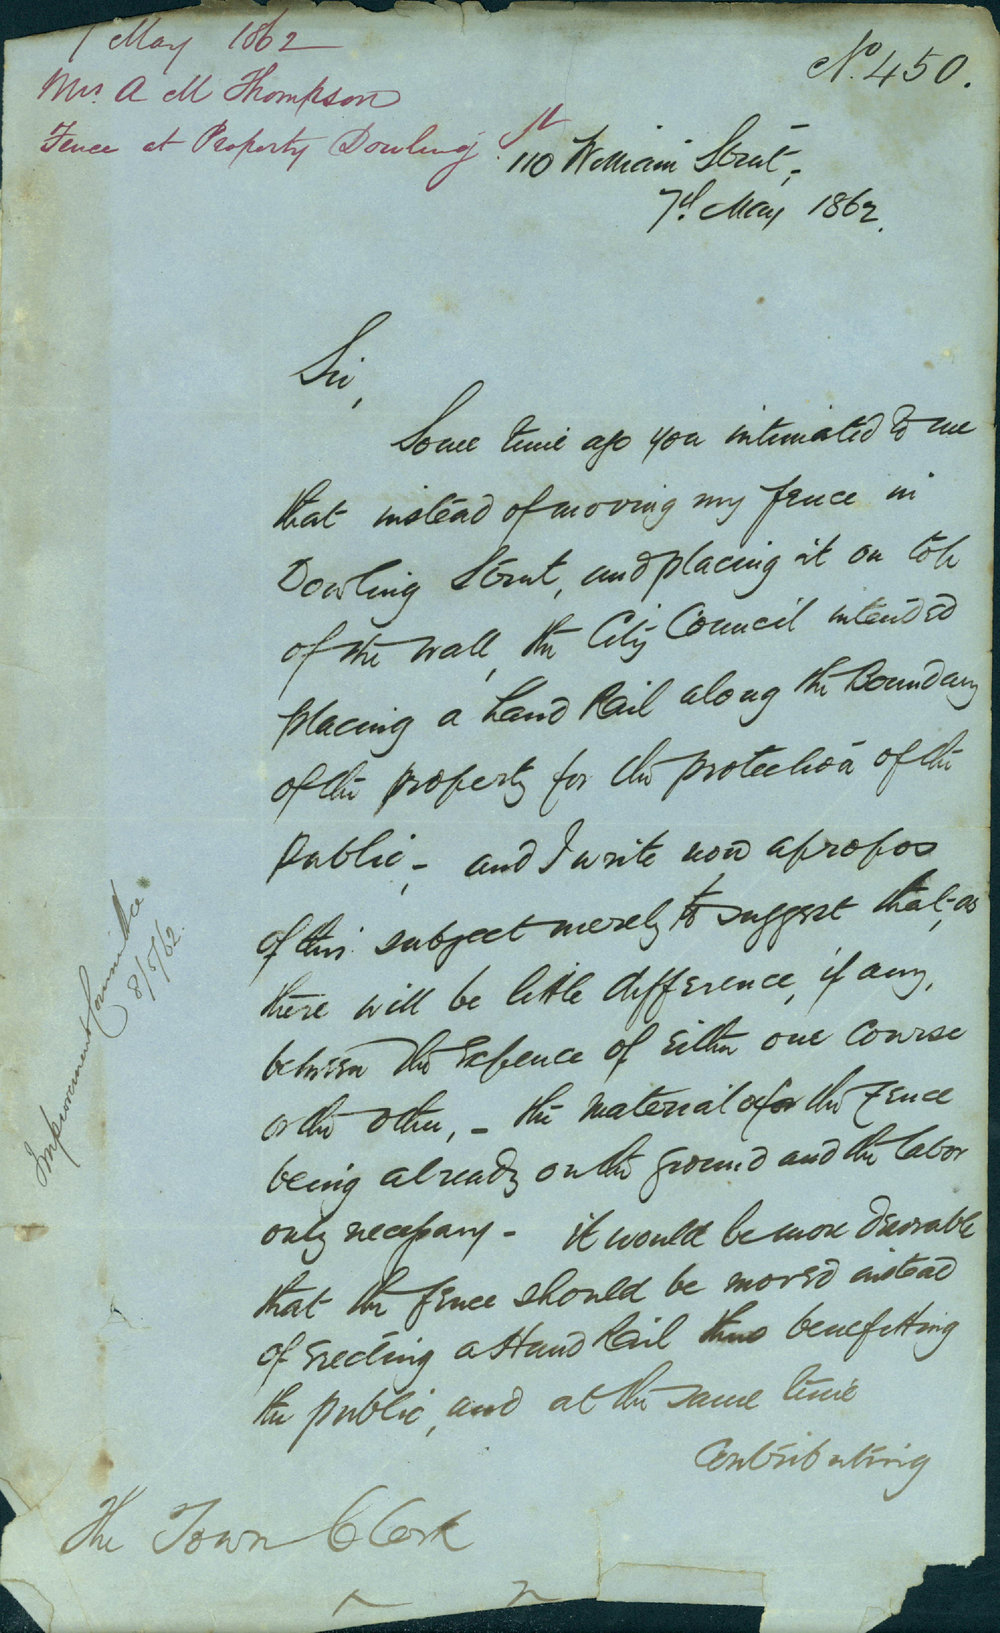 7 May 1862
Mrs A M Thompson
Fence at Property Dowling St
No. 450.
110 William Street,
7th May 1862.
Sir,
Some time ago you intimated to me
that instead of moving my fence in
Dowling Street, and placing it on top
of the wall, the City Council intended
placing a Hand Rail along the Boundary
of the property for the protection of the
public, - and I write now apropos
of this subject merely to suggest that, as
there will be little difference, if any,
between the Expence of either one course
or the other, - the material for the Fence
being already on the ground and the labor
only necessary - it would be more desirable
that the fence should be moved instead
of erecting a Hand Rail thus benefitting
the public, and at the same time
Contributing
The Town Clerk
Improvement Committee
8/5/62.